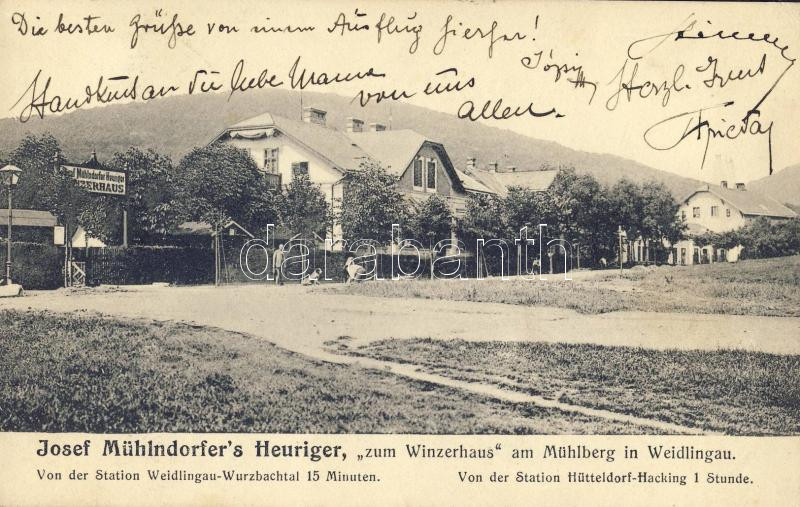 Die besten Grüße von einem Ausflug hierher!
Handkuss an die liebe Mama
von uns
allen.
Herzl.
Josef Mühlndorfer Heuriger
WINZERHAUS
darabanth
Josef Mühlndorfer's Heuriger, „zum Winzerhaus“ am Mühlberg in Weidlingau.
Von der Station Weidlingau-Wurzbachtal 15 Minuten. Von der Station Hütteldorf-Hacking 1 Stunde.